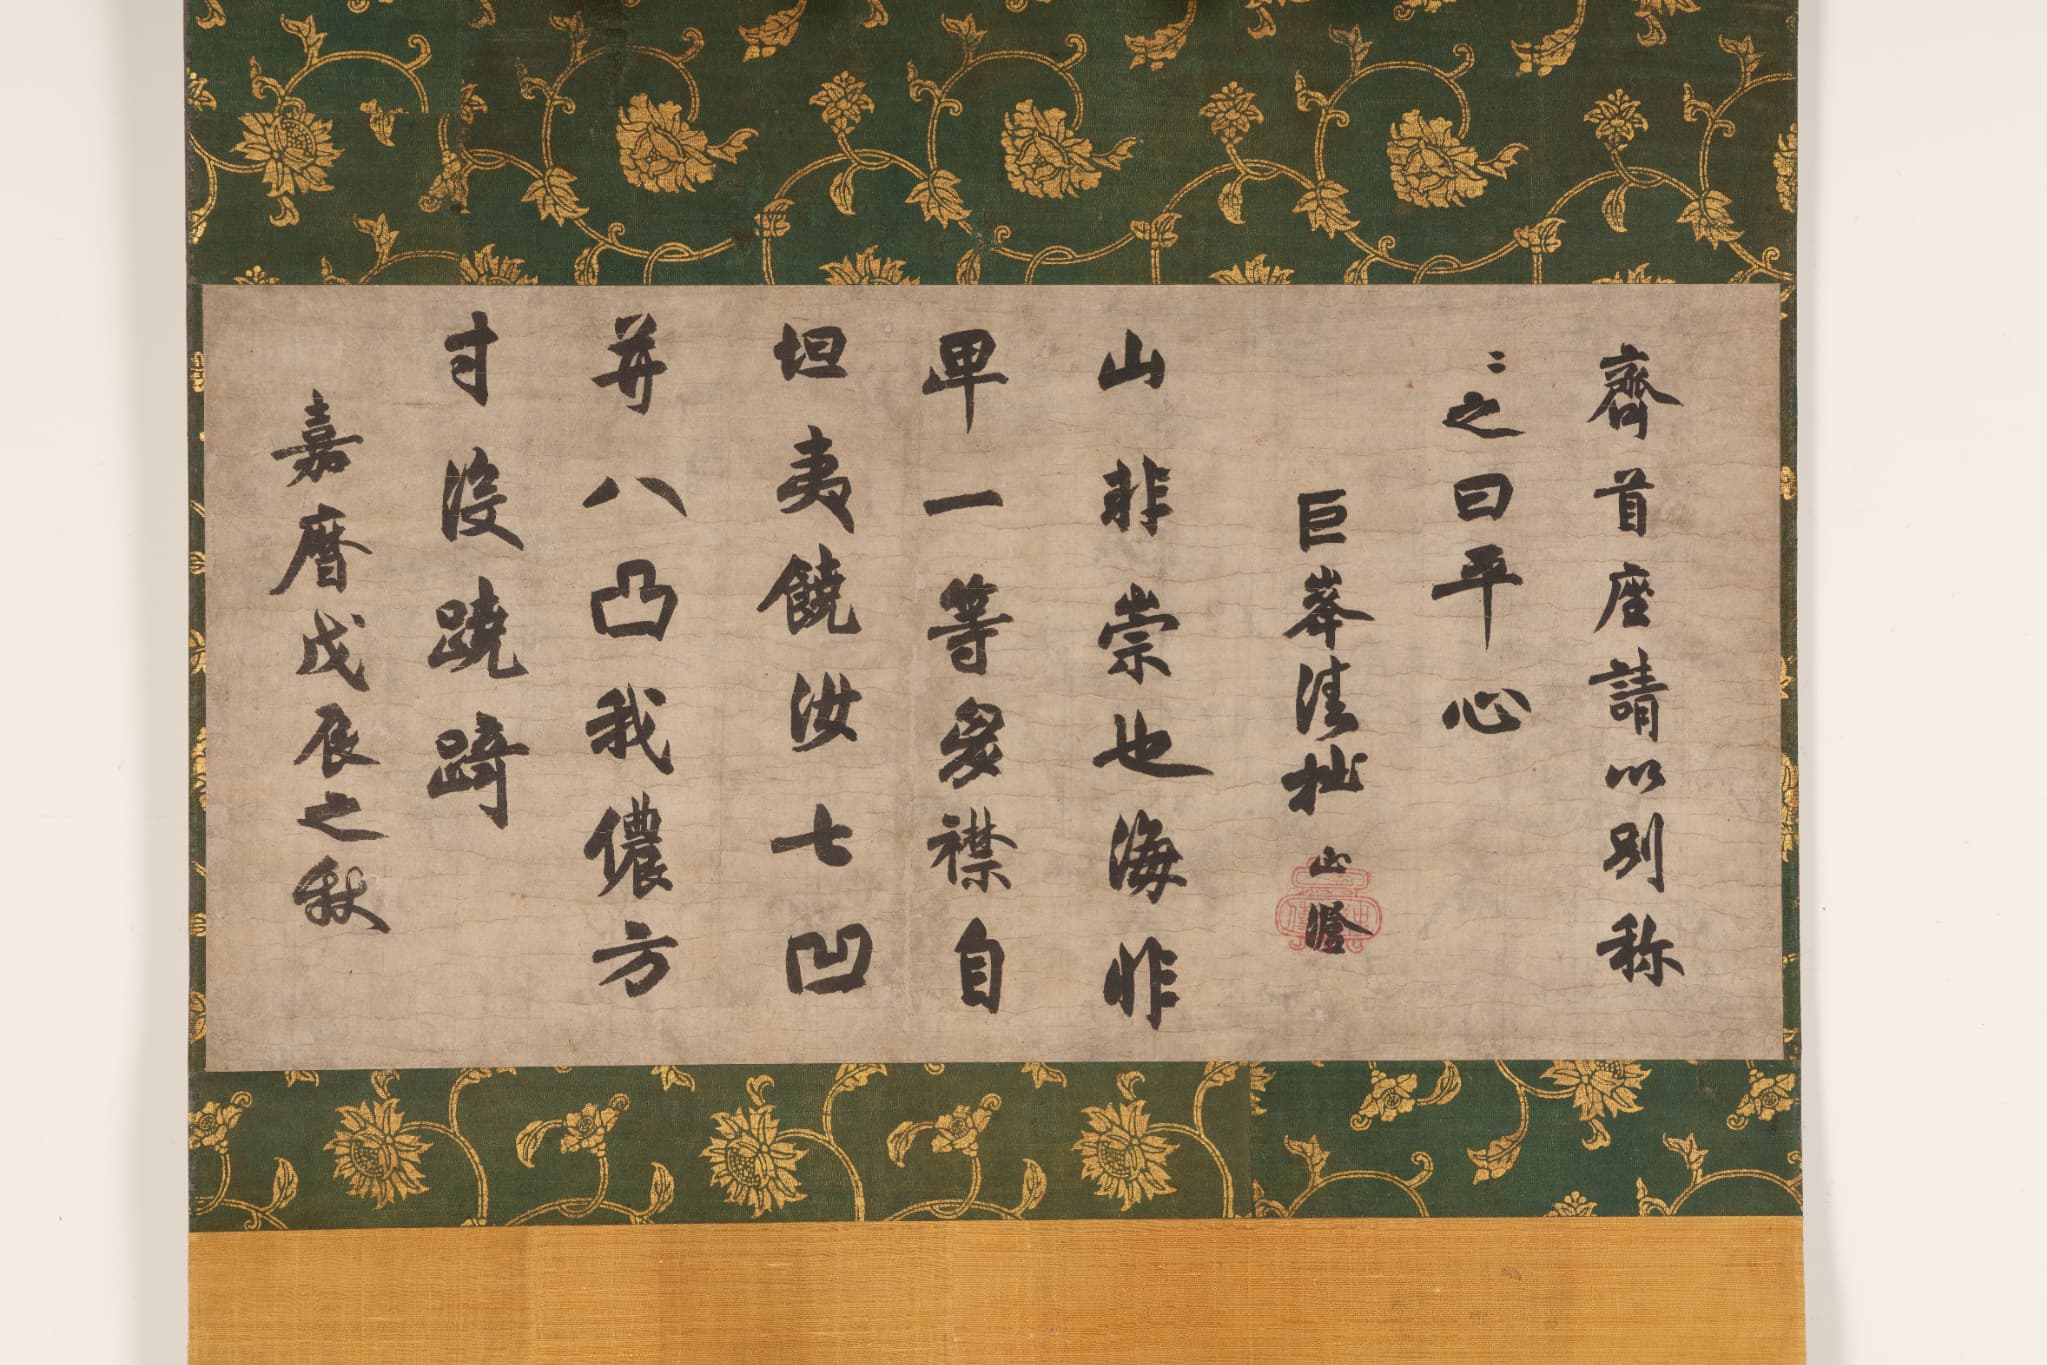 齊首座請以別称
〻之曰平心
巨峯清拙正澄
山非崇也海非
卑一等胷襟自
坦夷饒汝七凹
并八凸我儂方
寸没蹺踦
嘉暦戊辰之秋